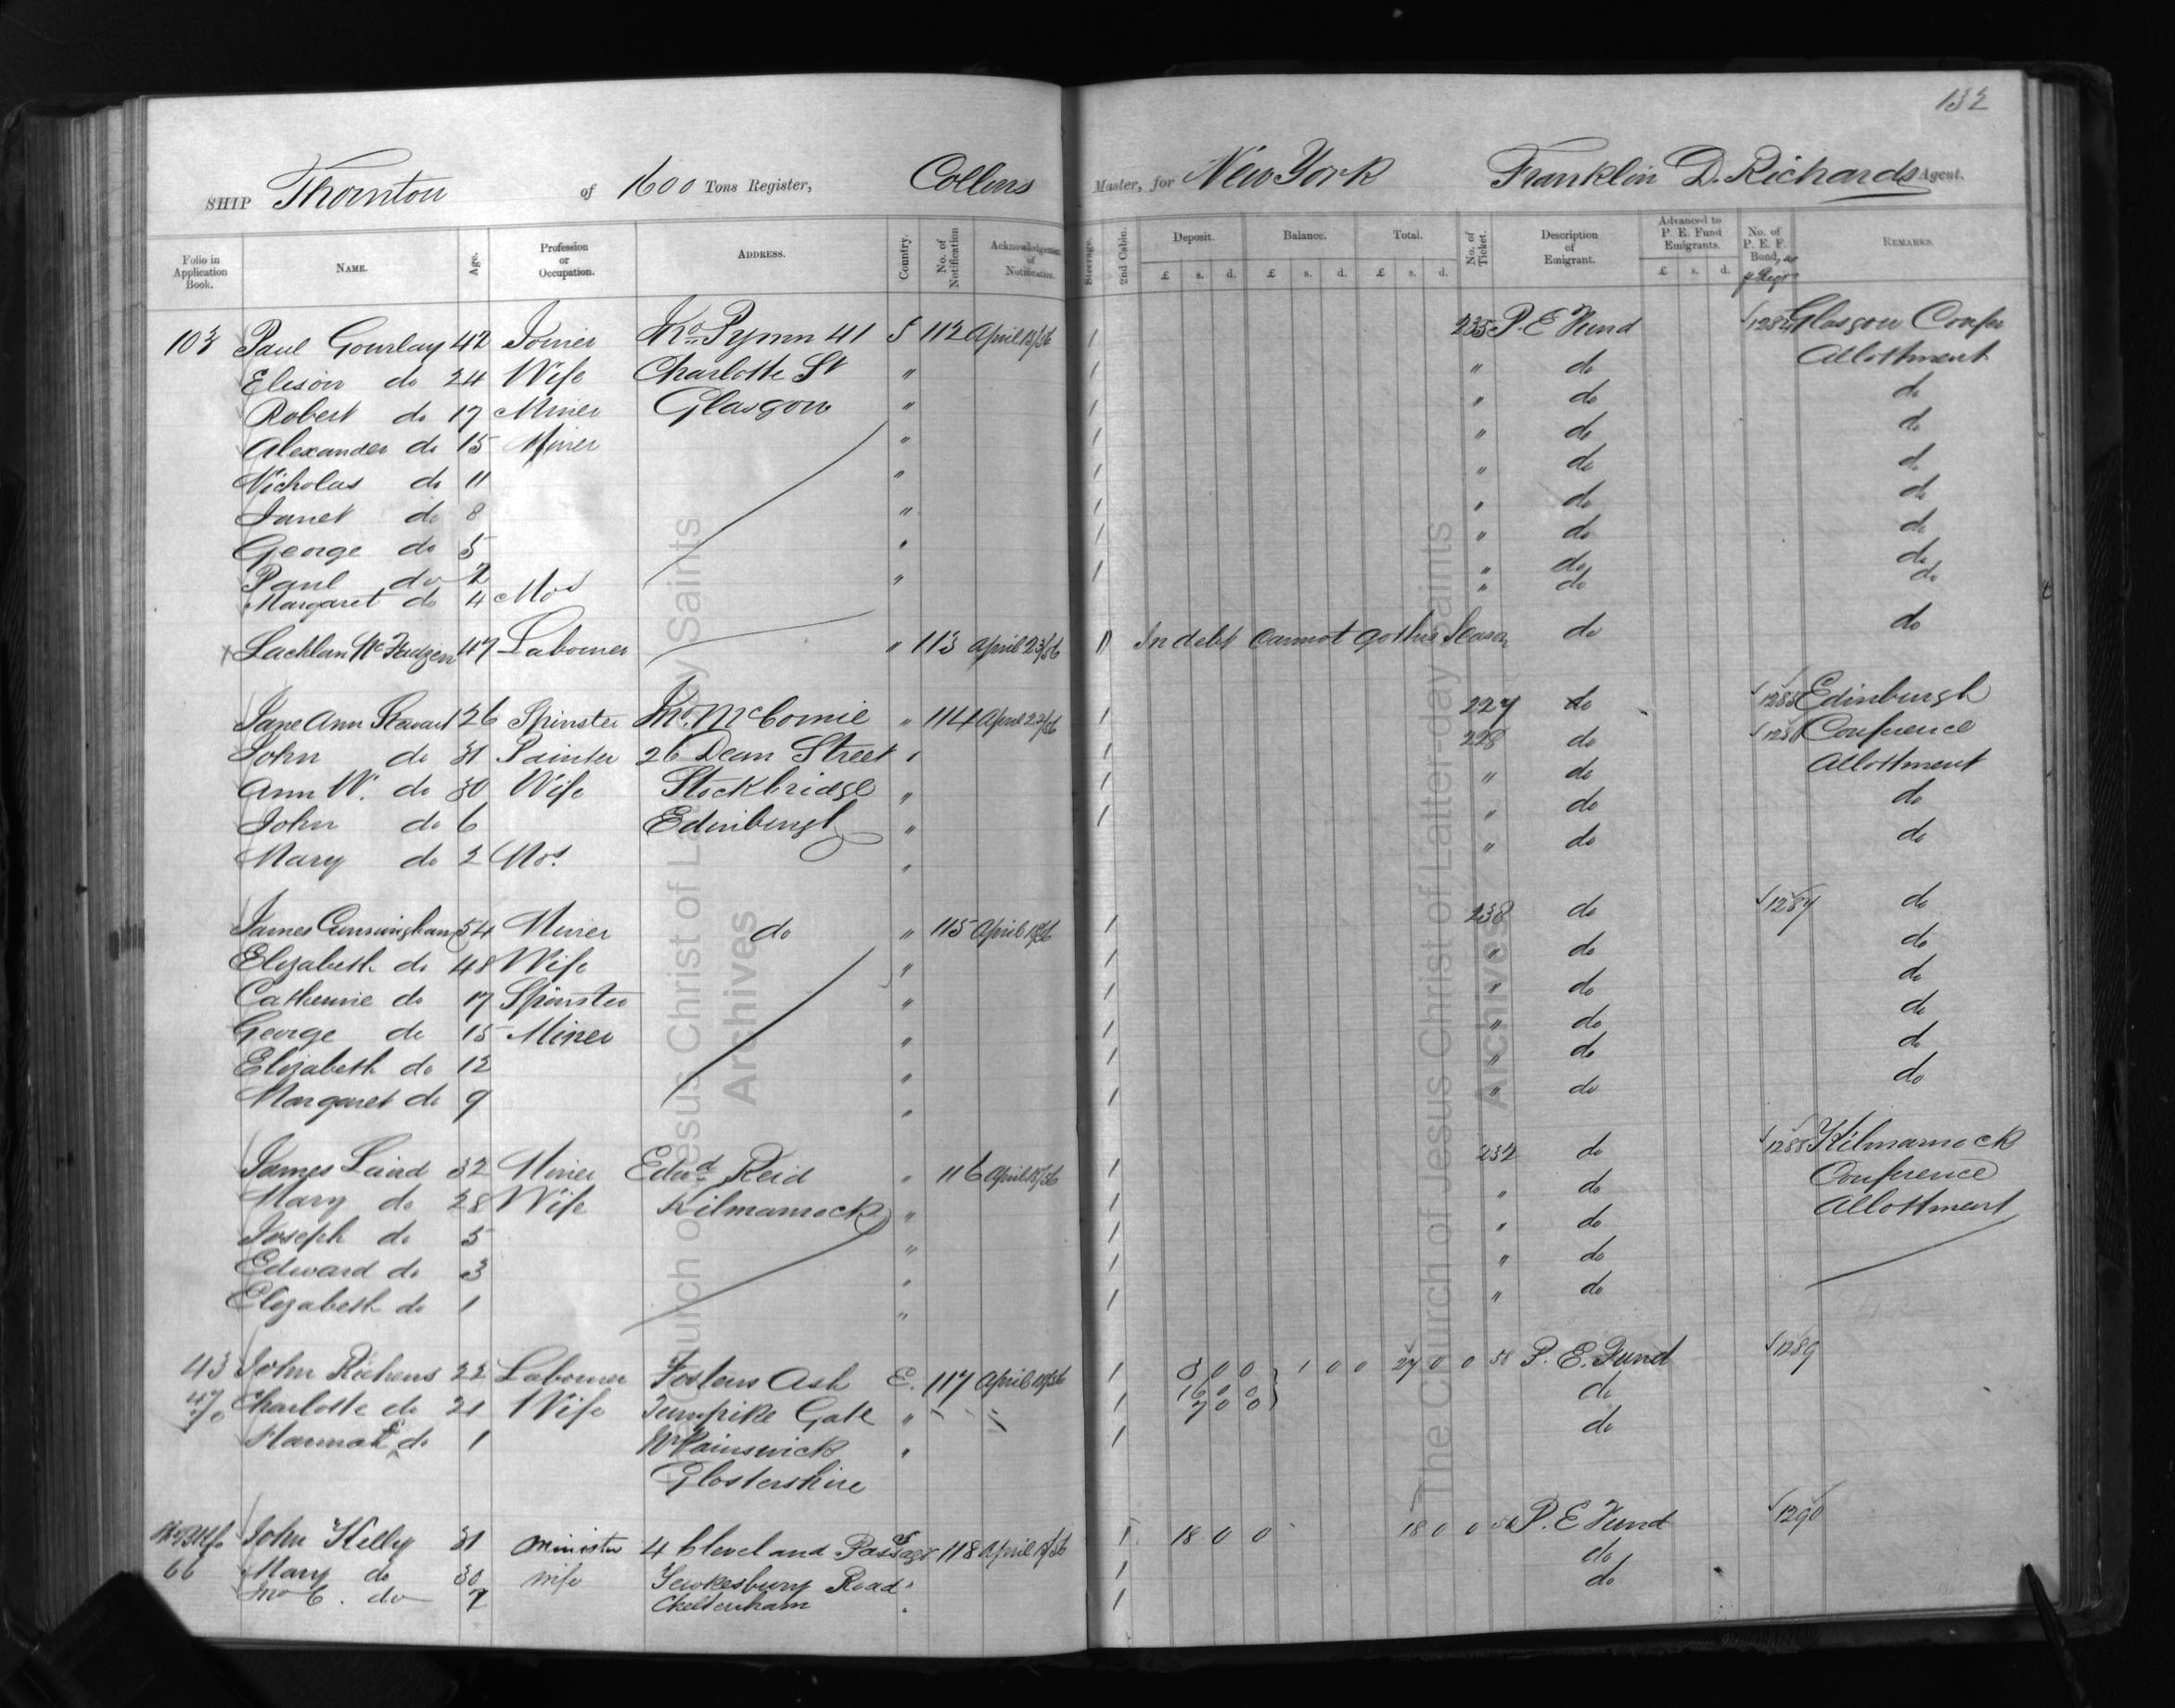 132
SHIP Thornton of 1600 Tons Register, Collins Master, for New York Franklin D. Richards Agent.
Folio in Application Book. NAME. Age. Profession or Occupation. ADDRESS. Country. No. of Notification Acknowledgement of Notification. Steerage. 2nd Cabin. Deposit. Balance. Total. No. of Ticket. Description of Emigrant. Advanced to P. E. Fund Emigrants. No. of P. E. F. Bond, REMARKS.
£ s. d. £ s. d. £ s. d. £ s. d.
103 Paul Gourlay 42 Joiner Jno Pymm 41 S 112 April 18/56 1 235 P. E Fund 1284 Glasgow Confe
Elison do 24 Wife Charlotte St " 1 " do Allottment
Robert do 17 Miner Glasgow " 1 " do do
Alexander do 15 Miner " 1 " do do
Nicholas do 11 " 1 " do do
Janet do 8 " 1 " do do
George do 5 " 1 " do do
Paul do 2 " 1 " do do
Margaret do 4 " do do
Lachlan McFadzen 47 Labourer " 113 April 23/56 In debt cannot go this Season do do
Jane Ann Stewart 26 Spinster Jno McComie " 114 April 22/56 1 227 do 1285 Edinburgh
John do 31 Painter 26 Dean Street " 1 228 do 1286 Conference
Ann W. do 30 Wife Stockbridge " 1 " do Allottment
John do 6 Edinburgh " 1 " do do
Mary do 2 Mos " " do do
James Cunningham 54 Miner do " 115 April 18/56 1 238 do 1287 do
Elizabeth do 48 Wife " 1 " do do
Catherine do 17 Spinster " 1 " do do
George do 15 Miner " 1 " do do
Elizabeth do 12 " 1 " do do
Margaret do 9 " 1 " do do
James Laird 32 Miner Edwd Reid " 116 April 18/56 1 232 do 1288 Kilmarnock
Mary do 28 Wife Kilmarnock " 1 " do Conference
Joseph do 5 " 1 " do Allottment
Edward do 3 " 1 " do
Elizabeth do 1 " 1 " do
43 John Richens 22 Labourer Fosters Ash E. 117 April 18/56 1 3 0 0 1 0 0 27 0 0 58 P. E. Fund 1289
Charlotte do 21 Wife Turnpike Gate " 1 16 0 0 do
7 0 0
Hannah do 1 Nr Painswick " 1 do
Glostershire
John Kelly 31 Minister 4 Cleveland Passage 118 April 18/56 1 18 0 0 18 0 0 P. E Fund 1290
66 Mary do 30 wife Tewkesbury Road " do
Jno C. do Cheltenham " 1 do
The Church of Jesus Christ of Latter-day Saints
Archives
The Church of Jesus Christ of Latter-day Saints
Archives